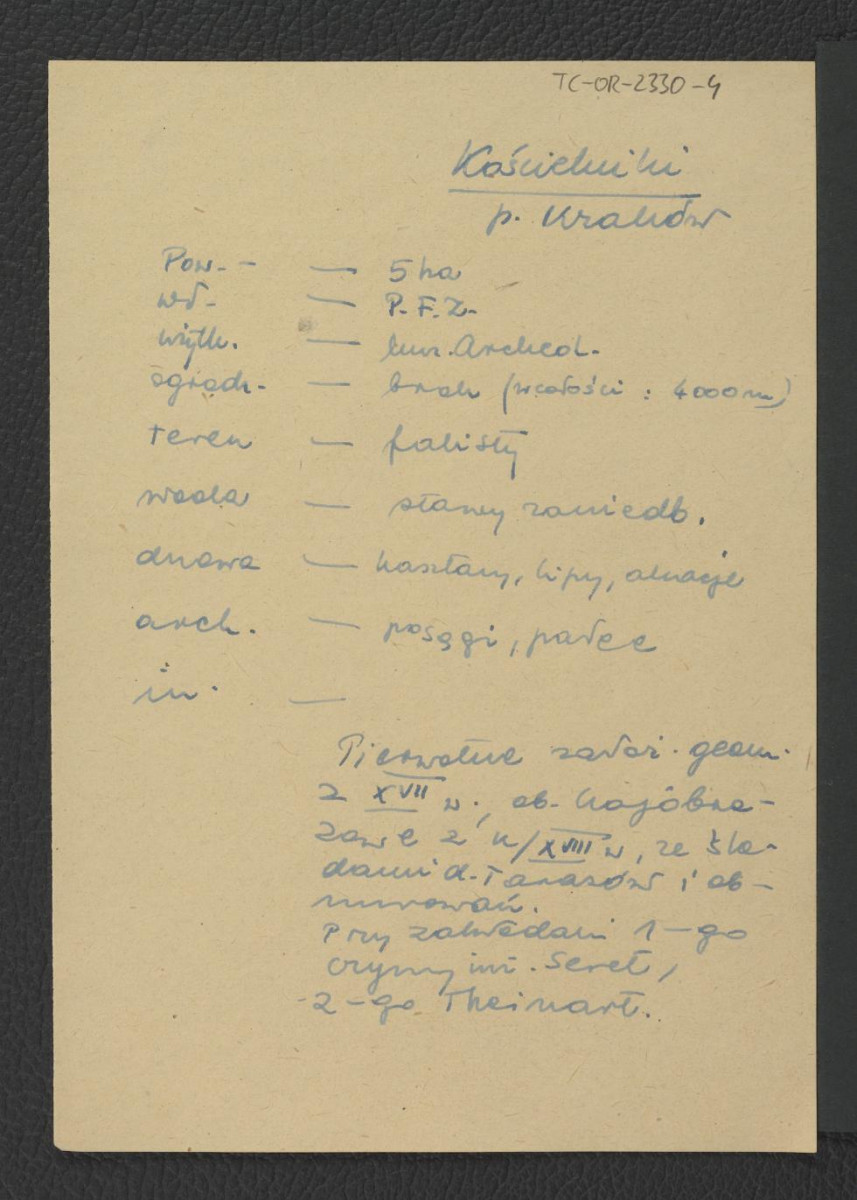 TC-OR-2330-4
Kościelniki
p. Kraków
Pow. - — 5 ha
wł. — P.F.Z.
użytk. — Archeol.
ogrodz. — brak (w całości : 4000 m)
teren — falisty
woda — stawy zaniedb.
drzewa — kasztany, lipy, akacje
arch. — posągi, pałac
in. —
Pierwotne założ. geom.
z XVII w., ob. krajobra-
zowe z k/XVIII w, ze śla-
dami d. tarasów i ob-
murowań.
Przy zakładani 1-go
czynny inż. Seret,
2-go Theinart.